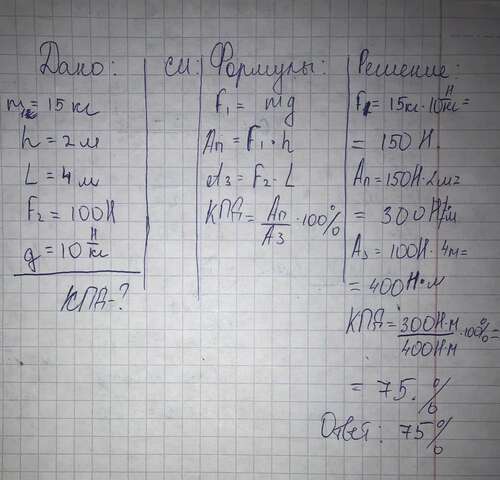 Дано:
m = 15 кг
h = 2 м
L = 4 м
F₂ = 100 Н
g = 10 Н/кг
КПД-?
СИ:
Формулы:
F₁ = mg
Aп = F₁·h
Aз = F₂·L
КПД = Aп/Aз ·100%
Решение:
F₁ = 15кг·10 Н/кг =
= 150 Н
Aп = 150Н·2м =
= 300 Н·м
Aз = 100Н·4м =
= 400 Н·м
КПД = 300Н·м/400Н·м ·100% =
= 75.%
Ответ: 75%